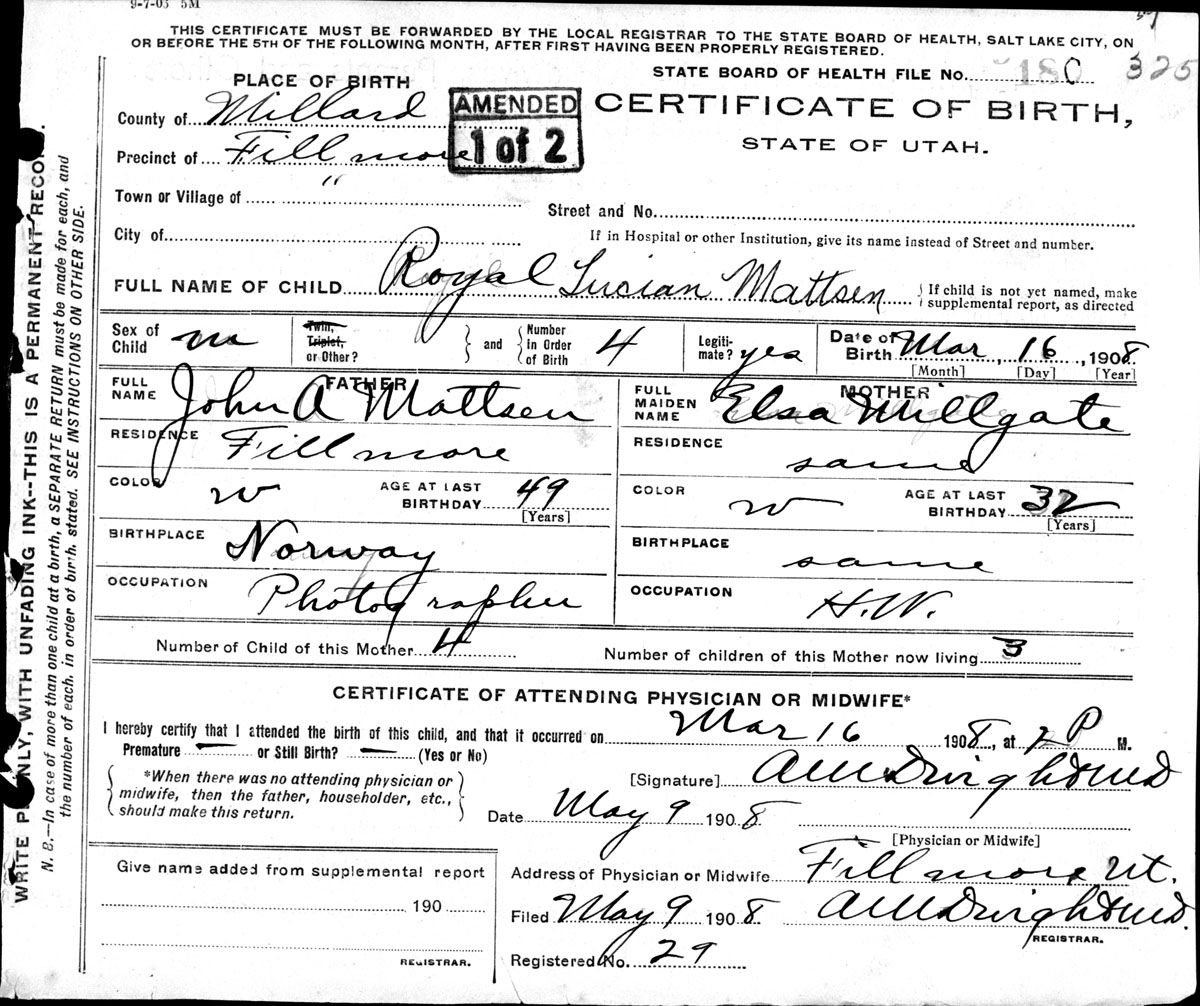 9-7-03 5M
THIS CERTIFICATE MUST BE FORWARDED BY THE LOCAL REGISTRAR TO THE STATE BOARD OF HEALTH, SALT LAKE CITY, ON
OR BEFORE THE 5TH OF THE FOLLOWING MONTH, AFTER FIRST HAVING BEEN PROPERLY REGISTERED.
STATE BOARD OF HEALTH FILE No. 180 325
PLACE OF BIRTH
AMENDED
1 of 2
CERTIFICATE OF BIRTH,
STATE OF UTAH.
County of Millard
Precinct of Fillmore
Town or Village of "
Street and No.
City of
If in Hospital or other Institution, give its name instead of Street and number.
FULL NAME OF CHILD Royal Lucian Mattsen { If child is not yet named, make
supplemental report, as directed
Sex of Child m Twin, Triplet, or Other? } and { Number in Order of Birth 4 Legiti-mate? yes Date of Birth Mar, 16, 1908
[Month] [Day] [Year]
FATHER
FULL NAME John A Mattsen
MOTHER
FULL MAIDEN NAME Elsa Millgate
RESIDENCE Fillmore
RESIDENCE same
COLOR w AGE AT LAST BIRTHDAY 49 [Years]
COLOR w AGE AT LAST BIRTHDAY 32 [Years]
BIRTHPLACE Norway
BIRTHPLACE same
OCCUPATION Photographer
OCCUPATION H.W.
Number of Child of this Mother 4 Number of children of this Mother now living 3
CERTIFICATE OF ATTENDING PHYSICIAN OR MIDWIFE*
I hereby certify that I attended the birth of this child, and that it occurred on Mar 16 1908, at 2 P M.
Premature — or Still Birth? — (Yes or No)
{ *When there was no attending physician or
midwife, then the father, householder, etc.,
should make this return. }
[Signature]
Date May 9 1908
[Physician or Midwife]
Give name added from supplemental report
190
REGISTRAR.
Address of Physician or Midwife Fillmore Ut.
Filed May 9 1908
REGISTRAR.
Registered No. 29
WRITE PLAINLY, WITH UNFADING INK--THIS IS A PERMANENT RECORD.
N. B.—In case of more than one child at a birth, a SEPARATE RETURN must be made for each, and
the number of each, in order of birth, stated. SEE INSTRUCTIONS ON OTHER SIDE.